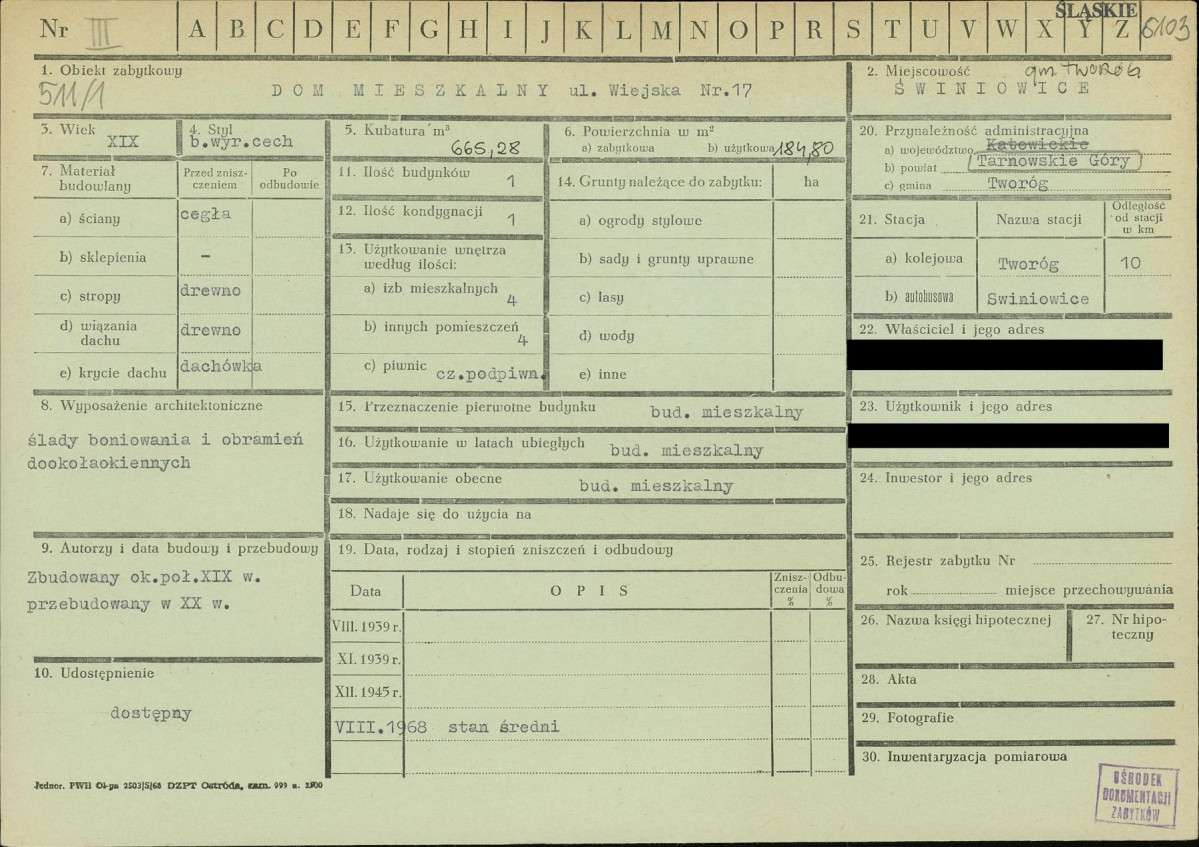 ŚLĄSKIE
Nr III A B C D E F G H I J K L M N O P R S T U V W X Y Z 6103
1. Obiekt zabytkowy
511/1
DOM MIESZKALNY ul. Wiejska Nr.17
2. Miejscowość gm. TWORÓG
ŚWINIOWICE
3. Wiek
XIX
4. Styl
b.wyr.cech
5. Kubatura m³
665,28
6. Powierzchnia w m²
a) zabytkowa b) użytkowa 184,80
7. Materiał budowlany
Przed zniszczeniem
Po odbudowie
a) ściany cegła
b) sklepienia –
c) stropy drewno
d) wiązania dachu drewno
e) krycie dachu dachówka
8. Wyposażenie architektoniczne
ślady boniowania i obramień
dookołaokiennych
9. Autorzy i data budowy i przebudowy
Zbudowany ok.poł.XIX w.
przebudowany w XX w.
10. Udostępnienie
dostępny
11. Ilość budynków 1
12. Ilość kondygnacji 1
13. Użytkowanie wnętrza
według ilości:
a) izb mieszkalnych 4
b) innych pomieszczeń 4
c) piwnic cz.podpiwn.
14. Grunty należące do zabytku: ha
a) ogrody stylowe
b) sady i grunty uprawne
c) lasy
d) wody
e) inne
15. Przeznaczenie pierwotne budynku bud. mieszkalny
16. Użytkowanie w latach ubiegłych bud. mieszkalny
17. Użytkowanie obecne bud. mieszkalny
18. Nadaje się do użycia na
19. Data, rodzaj i stopień zniszczeń i odbudowy
Data OPIS Zniszczenia % Odbudowa %
VIII. 1939 r.
XI. 1939 r.
XII. 1945 r.
VIII.1968 stan średni
20. Przynależność administracyjna
a) województwo Katowickie
b) powiat Tarnowskie Góry
c) gmina Tworóg
21. Stacja Nazwa stacji Odległość od stacji w km
a) kolejowa Tworóg 10
b) autobusowa Swiniowice
22. Właściciel i jego adres
23. Użytkownik i jego adres
24. Inwestor i jego adres
25. Rejestr zabytku Nr
rok miejsce przechowywania
26. Nazwa księgi hipotecznej
27. Nr hipoteczny
28. Akta
29. Fotografie
30. Inwentaryzacja pomiarowa
OŚRODEK
DOKUMENTACJI
ZABYTKÓW